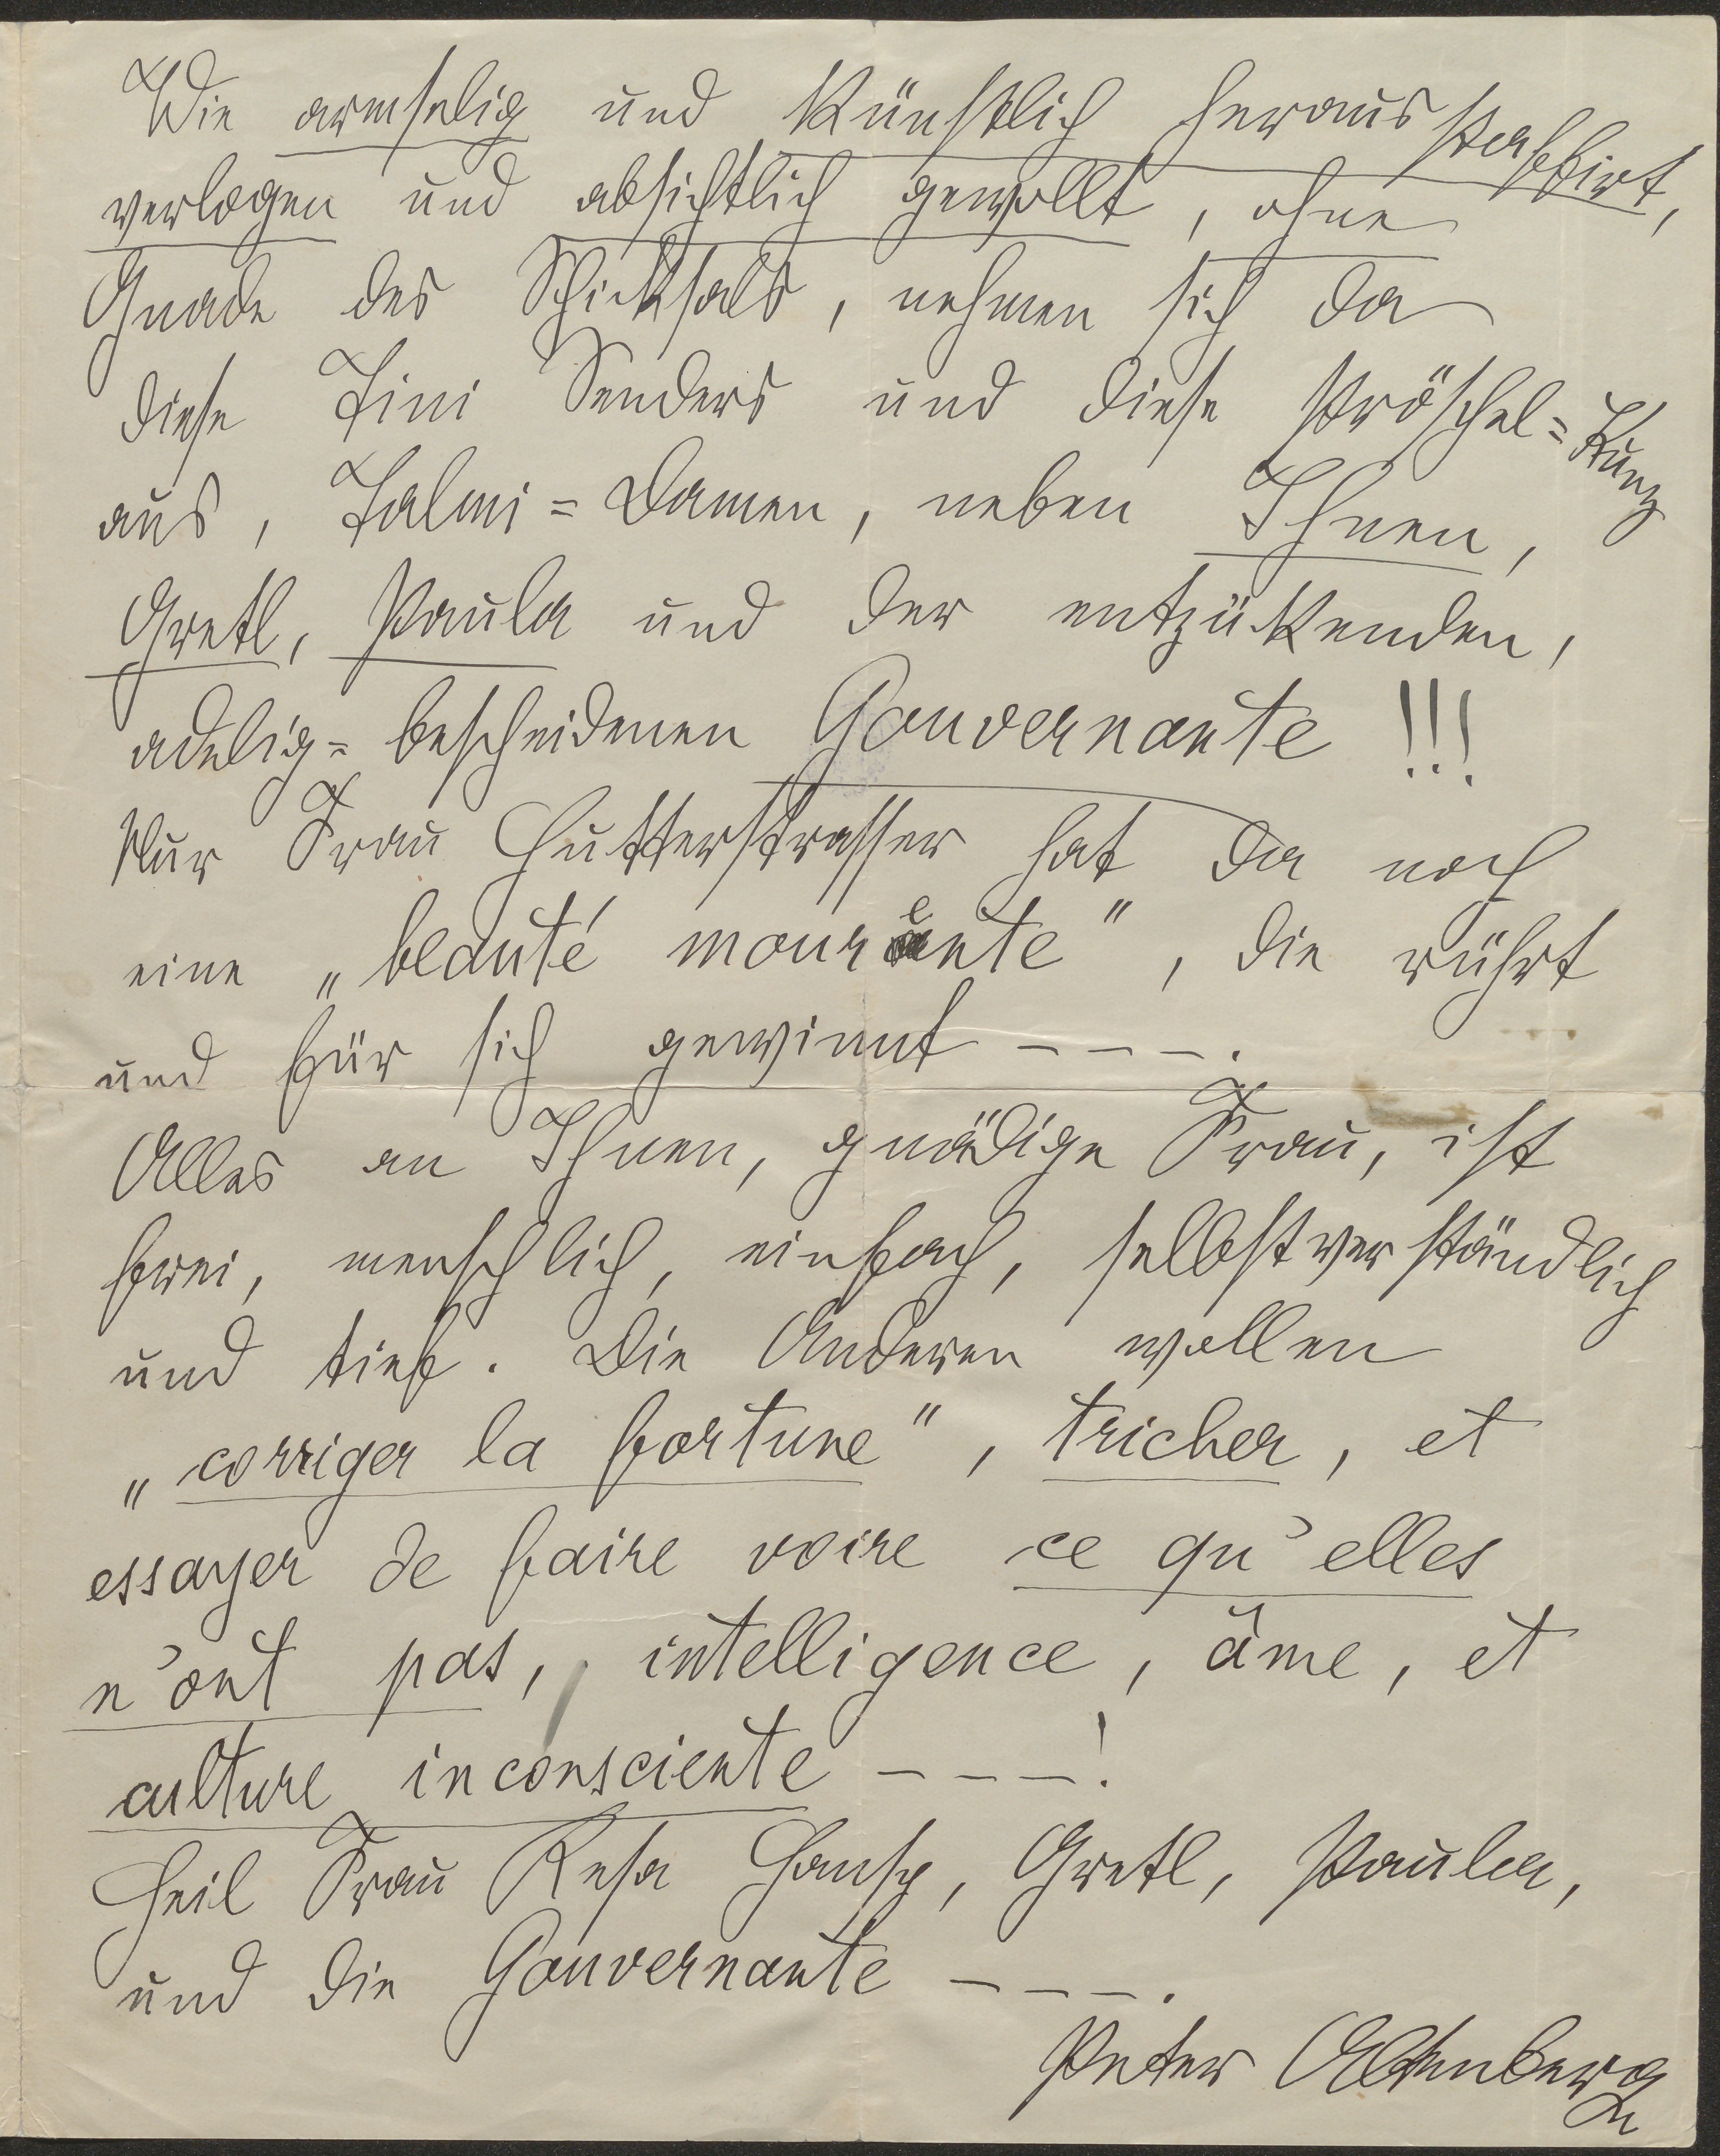 Wie armselig und künstlich herausstaffirt,
verlogen und absichtlich gewollt, ohne
Gnade des Schicksals, nehmen sich da
diese Tini Senders und diese Pröschel=Kunz
aus, Talmi=Damen, neben Ihnen,
Gretl, Paula und der entzückenden,
adelig=bescheidenen Gouvernante !!!
Nur Frau Hutterstrasser hat da noch
eine „beauté mourente", die rührt
und für sich gewinnt - - - -.
Alles an Ihnen, gnädige Frau, ist
frei, menschlich, einfach, selbstverständlich
und tief. Die Anderen wollen
„corriger la fortune", tricher, et
essayer de faire voire ce qu'elles
n'ont pas, intelligence, âme, et
culture inconsciente - - - -!
Heil Frau Resa Hansy, Gretl, Paula,
und die Gouvernante - - - -.
Peter Altenberg